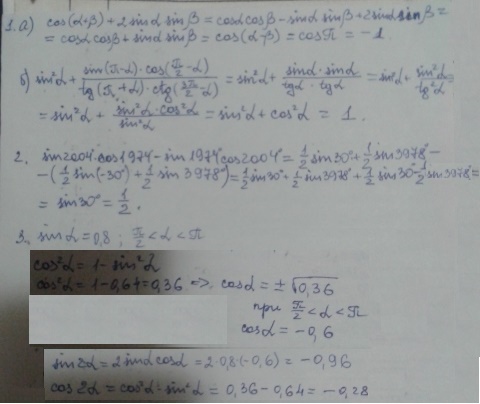 1. а) cos(α+β) + 2 sinα sinβ = cosα cosβ − sinα sinβ + 2 sinα sinβ =
= cosα cosβ + sinα sinβ = cos(α−β) = cosπ = −1
б) sin²α + sin(π−α)·cos(π/2−α) / tg(π+α)·ctg(3π/2−α) = sin²α + sinα·sinα / tgα·tgα = sin²α + sin²α / tg²α =
= sin²α + sin²α·cos²α / sin²α = sin²α + cos²α = 1.
2. sin2004°·cos1974° − sin1974°cos2004° = 1/2 sin30° + 1/2 sin3978° −
−(1/2 sin(−30°) + 1/2 sin3978°) = 1/2 sin30° + 1/2 sin3978° + 1/2 sin30° − 1/2 sin3978° =
= sin30° = 1/2.
3. sinα = 0,8 ; π/2 < α < π
cos²α = 1 − sin²α
cos²α = 1 − 0,64 = 0,36 => cosα = ±√0,36
при π/2 < α < π
cosα = −0,6
sin2α = 2 sinα cosα = 2·0,8·(−0,6) = −0,96
cos2α = cos²α − sin²α = 0,36 − 0,64 = −0,28